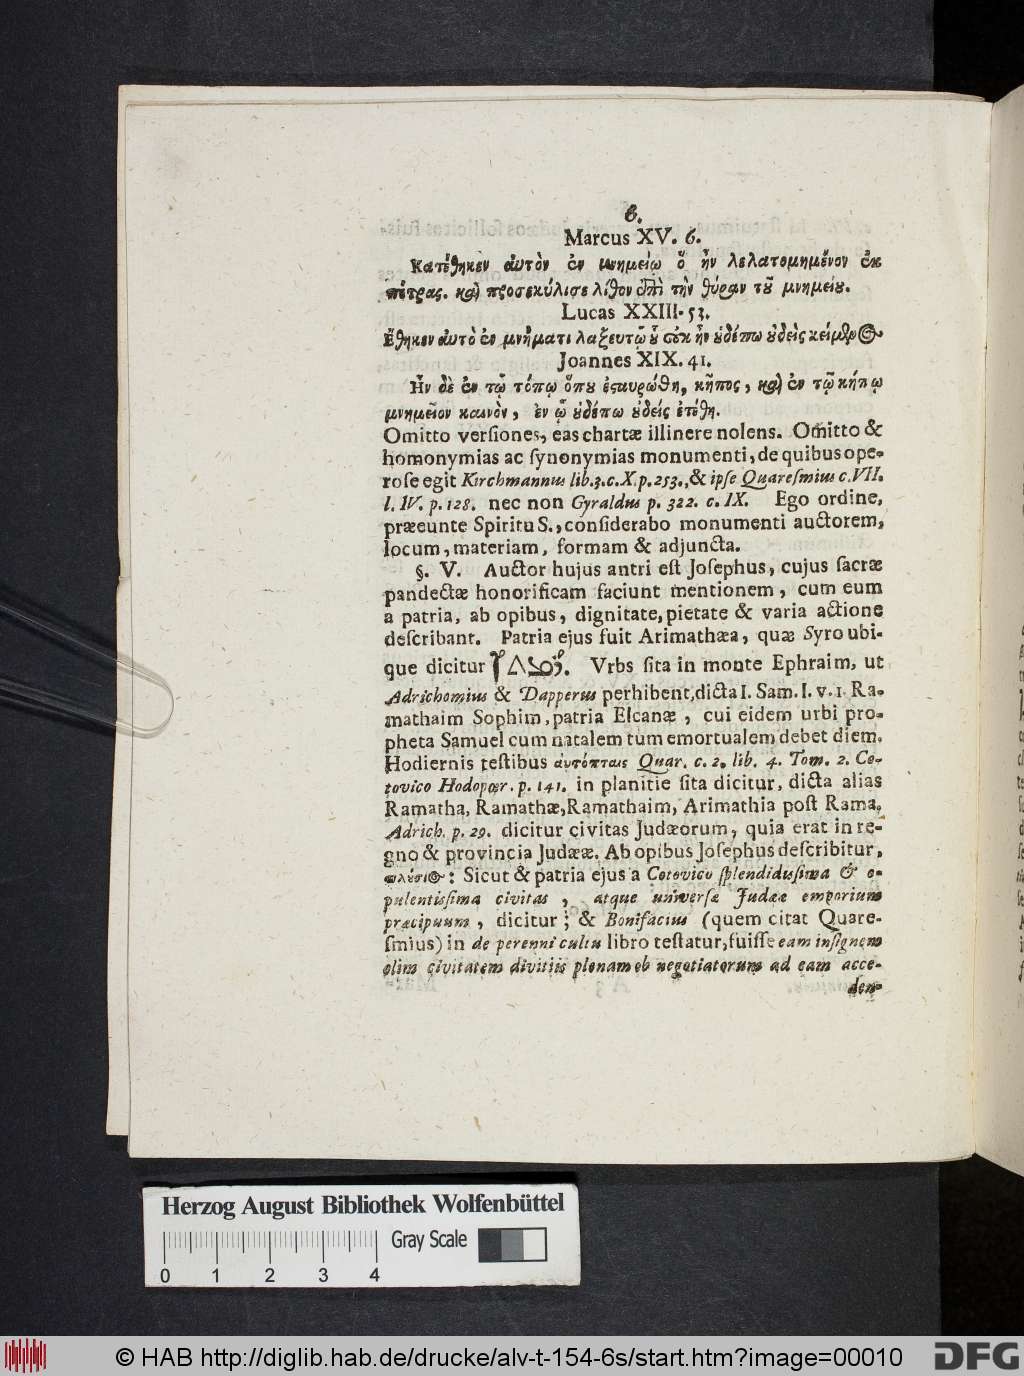 6.
Marcus XV. 6.
Κατέθηκεν αυτὸν ἐν μνημείῳ ὅ ἦν λελατομημένον ἐκ
πέτρας. καὶ προσεκύλισε λίθον ἐπὶ τὴν θύραν τοῦ μνημείου.
Lucas XXIII. 53.
Ἔθηκεν αυτὸ ἐν μνήματι λαξευτῷ οὗ οὐκ ἦν οὐδέπω οὐδεὶς κείμενος
Joannes XIX. 41.
Ην δὲ ἐν τῷ τόπῳ ὅπου ἐσταυρώθη, κῆπος, καὶ ἐν τῷ κήπῳ
μνημεῖον καινὸν, ἐν ᾧ οὐδέπω οὐδείς ἐτέθη.
Omitto verſiones, eas chartæ illinere nolens. Omitto &
homonymias ac ſynonymias monumenti, de quibus ope-
roſe egit Kirchmannus lib. 3. c. X. p. 253., & ipſe Quareſmius c. VII.
l. IV. p. 128. nec non Gyraldus p. 322. c. IX. Ego ordine,
præeunte Spiritu S., conſiderabo monumenti auctorem,
locum, materiam, formam & adjuncta.
§. V. Auctor hujus antri eſt Joſephus, cujus ſacræ
pandectæ honorificam faciunt mentionem, cum eum
a patria, ab opibus, dignitate, pietate & varia actione
deſcribant. Patria ejus fuit Arimathæa, quæ Syro ubi-
que dicitur . Vrbs ſita in monte Ephraim, ut
Adrichomius & Dapperus perhibent, dicta I. Sam. I. v. 1. Ra-
mathaim Sophim, patria Elcanæ, cui eidem urbi pro-
pheta Samuel cum natalem tum emortualem debet diem.
Hodiernis teſtibus αυτόπταις Quar. c. 2. lib. 4. Tom. 2. Co-
tovico Hodopor. p. 141. in planitie ſita dicitur, dicta alias
Ramatha, Ramathæ, Ramathaim, Arimathia poſt Rama.
Adrich. p. 29. dicitur civitas Judæorum, quia erat in re-
gno & provincia Judææ. Ab opibus Joſephus deſcribitur,
πλύσιος: Sicut & patria ejus a Cotovico ſplendidiſsima & o-
pulentiſsima civitas, atque univerſæ Judææ emporium
præcipuum, dicitur; & Bonifacius (quem citat Quare-
ſmius) in de perenni cultu libro teſtatur, fuiſſe eam inſignem
olim civitatem divitiis plenam ob negotiatorum ad eam acce-
den-
Herzog August Bibliothek Wolfenbüttel
Gray Scale
0 1 2 3 4
© HAB http://diglib.hab.de/drucke/alv-t-154-6s/start.htm?image=00010
DFG